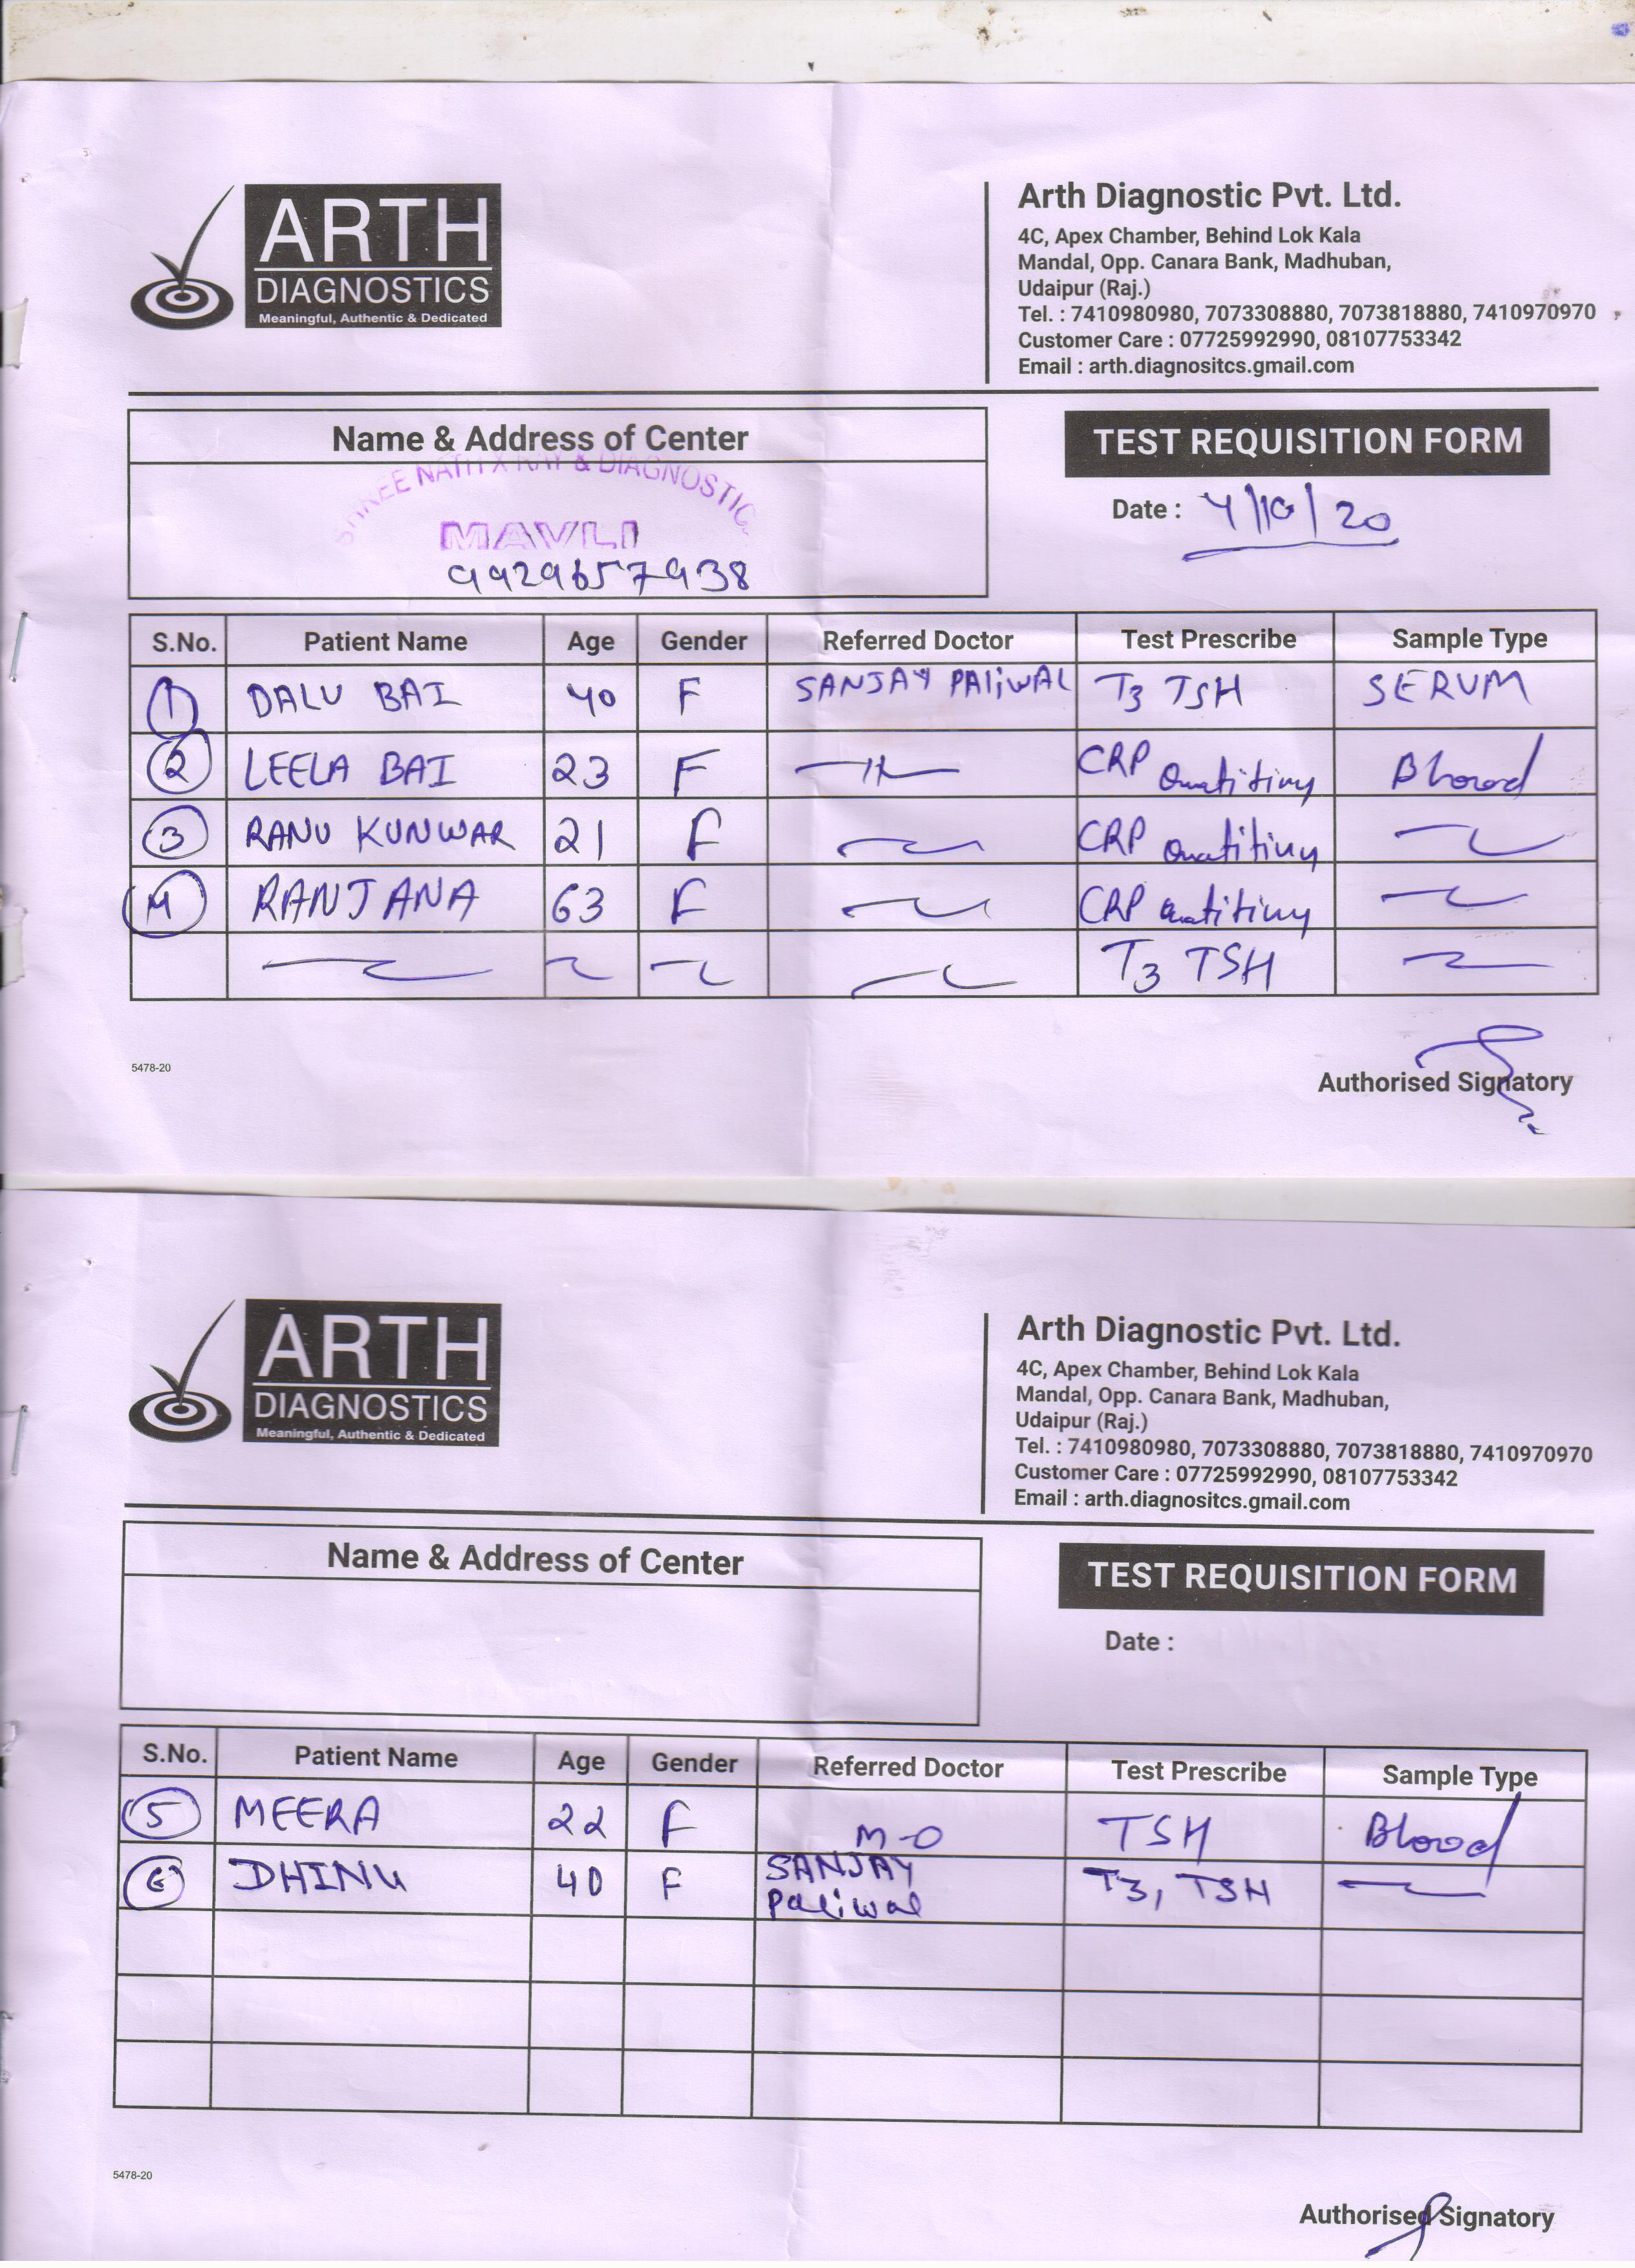 ARTH
DIAGNOSTICS
Meaningful, Authentic & Dedicated
Arth Diagnostic Pvt. Ltd.
4C, Apex Chamber, Behind Lok Kala
Mandal, Opp. Canara Bank, Madhuban,
Udaipur (Raj.)
Tel. : 7410980980, 7073308880, 7073818880, 7410970970
Customer Care : 07725992990, 08107753342
Email : arth.diagnositcs.gmail.com
Name & Address of Center
SHREE NATH X RAY & DIAGNOSTIC
MAVLI
9929657938
TEST REQUISITION FORM
Date : 4/10/20
S.No. Patient Name Age Gender Referred Doctor Test Prescribe Sample Type
1 DALU BAI 40 F SANJAY PALIWAL T3 TSH SERUM
2 LEELA BAI 23 F CRP Blood
3 RANU KUNWAR 21 F CRP
4 RANJANA 63 F CRP
T3 TSH
5478-20
Authorised Signatory
ARTH
DIAGNOSTICS
Meaningful, Authentic & Dedicated
Arth Diagnostic Pvt. Ltd.
4C, Apex Chamber, Behind Lok Kala
Mandal, Opp. Canara Bank, Madhuban,
Udaipur (Raj.)
Tel. : 7410980980, 7073308880, 7073818880, 7410970970
Customer Care : 07725992990, 08107753342
Email : arth.diagnositcs.gmail.com
Name & Address of Center
TEST REQUISITION FORM
Date :
S.No. Patient Name Age Gender Referred Doctor Test Prescribe Sample Type
5 MEERA 22 F M-O TSH Blood
6 DHINU 40 F SANJAY Paliwal T3, TSH
5478-20
Authorised Signatory